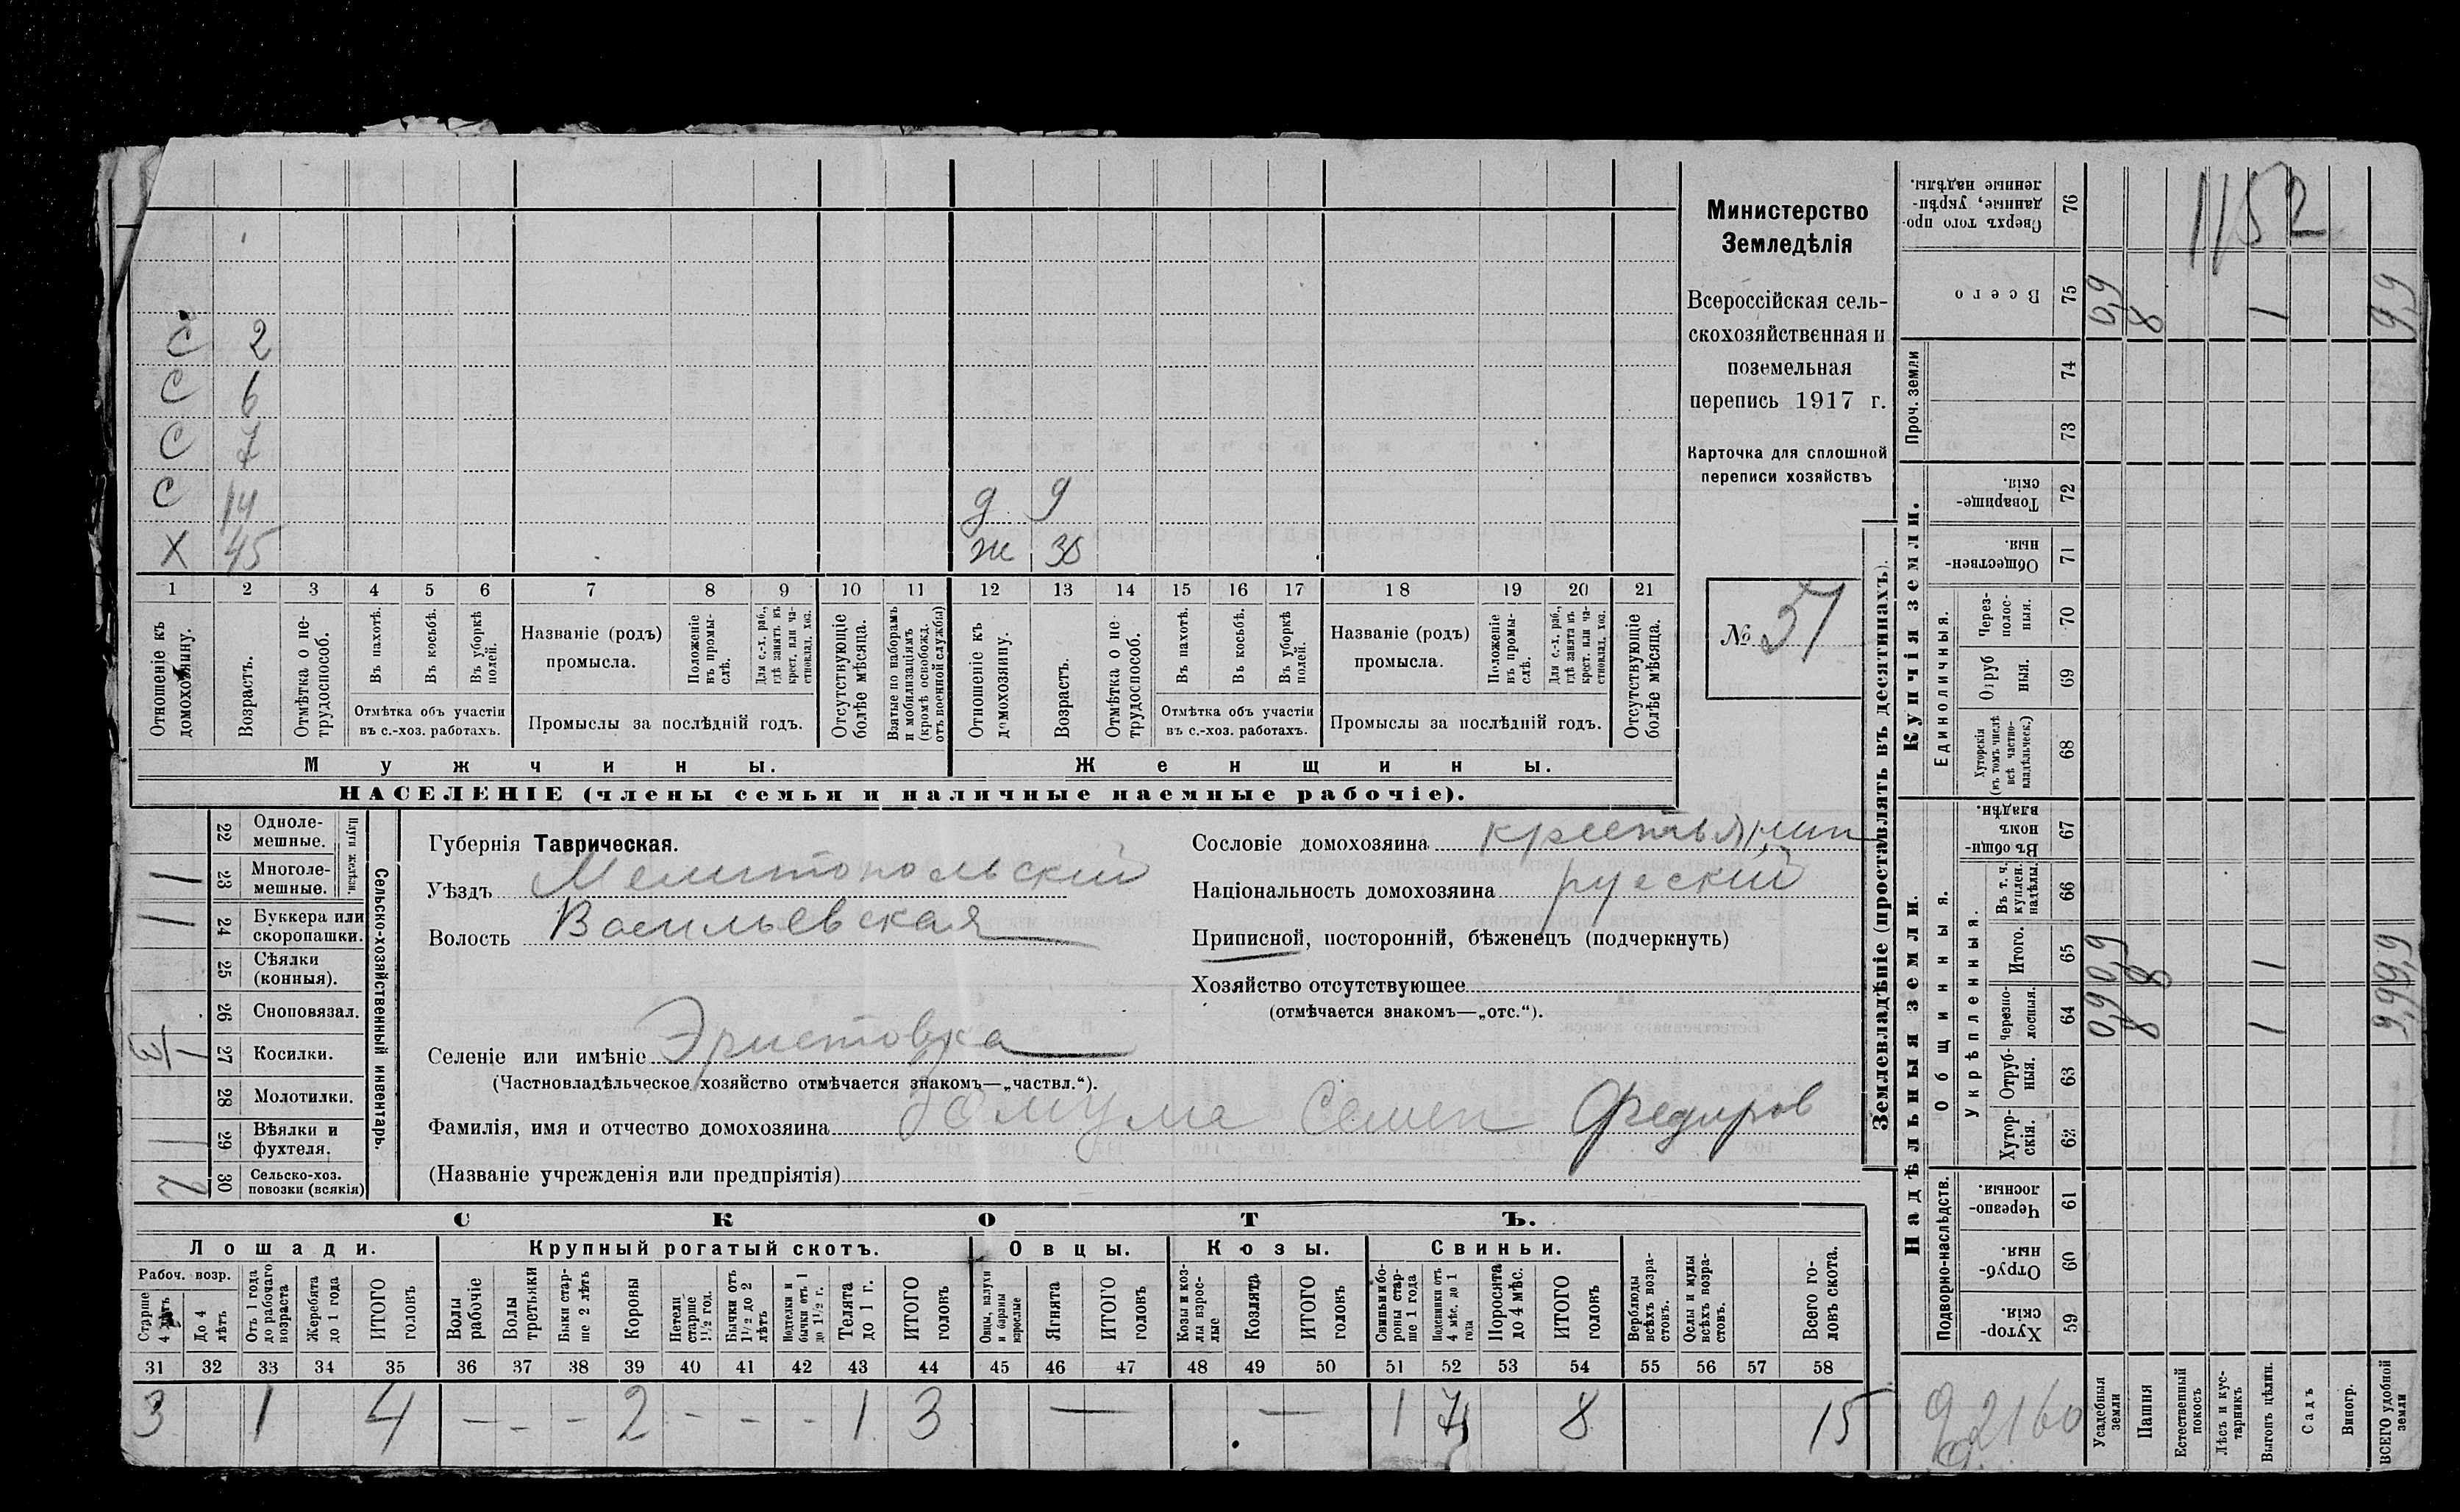 С 2
С 6
С 7
С 14 д 9
Х 45 ж
1 2 3 4 5 6 7 8 9 10 11 12 13 14 15 16 17 18 19 20 21
Отношеніе къ домохозяину.
Возрастъ.
Отмѣтка о нетрудоспособ.
Въ пахотѣ.
Въ косьбѣ.
Въ уборкѣ полей.
Отмѣтка объ участіи
въ с.-хоз. работахъ.
Названіе (родъ)
промысла.
Положеніе въ промыслѣ.
Для с.-х. раб., гдѣ занятъ въ крест. или частновлад. хоз.
Промыслы за послѣдній годъ.
Отсутствующіе болѣе мѣсяца.
Взятые по наборамъ и мобилизаціямъ (кромѣ освобожд. отъ военной службы)
Отношеніе къ домохозяину.
Возрастъ.
Отмѣтка о нетрудоспособ.
Въ пахотѣ.
Въ косьбѣ.
Въ уборкѣ полей.
Отмѣтка объ участіи
въ с.-хоз. работахъ.
Названіе (родъ)
промысла.
Положеніе въ промыслѣ.
Для с.-х. раб., гдѣ занята въ крест. или частновлад. хоз.
Промыслы за послѣдній годъ.
Отсутствующіе болѣе мѣсяца.
Мужчины.
Женщины.
НАСЕЛЕНІЕ (члены семьи и наличные наемные рабочіе).
Министерство
Земледѣлія
Всероссійская сель-
скохозяйственная и
поземельная
перепись 1917 г.
Карточка для сплошной
переписи хозяйствъ
№ 51
Сельско-хозяйственный инвентарь.
Плуги желѣзн.
22 Одноле-
мешные.
1 23 Многоле-
мешные.
1 24 Буккера или
скоропашки.
25 Сѣялки
(конныя).
26 Сноповязал.
1/3 27 Косилки.
28 Молотилки.
1 29 Вѣялки и
фухтеля.
2 30 Сельско-хоз.
повозки (всякія)
Губернія Таврическая.
Уѣздъ Мелитопольскій
Волость Васильевская
Селеніе или имѣніе Эристовка
(Частновладѣльческое хозяйство отмѣчается знакомъ—„частвл.“).
Фамилія, имя и отчество домохозяина Семен Федоров
(Названіе учрежденія или предпріятія)
Сословіе домохозяина крестьянин
Національность домохозяина руский
Приписной, посторонній, бѣженецъ (подчеркнуть)
Хозяйство отсутствующее
(отмѣчается знакомъ—„отс.“).
СКОТЪ.
Лошади. Крупный рогатый скотъ. Овцы. Козы. Свиньи.
Рабоч. возр.
Старше 4 лѣтъ
До 4 лѣтъ
Отъ 1 года до рабочаго возраста
Жеребята до 1 года
ИТОГО головъ
Волы рабочіе
Волы третьяки
Быки старше 2 лѣтъ
Коровы
Нетели старше 1½ год.
Бычки отъ 1½ до 2 лѣтъ
Подтелки и бычки отъ 1 до 1½ г.
Телята до 1 г.
ИТОГО головъ
Овцы, валухи и бараны взрослые
Ягнята
ИТОГО головъ
Козы и козлы взрослые
Козлята
ИТОГО головъ
Свиньи и боровы старше 1 года
Подсвинки отъ 4 мѣс. до 1 года
Поросята до 4 мѣс.
ИТОГО головъ
Верблюды всѣхъ возрастовъ.
Ослы и мулы всѣхъ возрастовъ.
Всего головъ скота.
31 32 33 34 35 36 37 38 39 40 41 42 43 44 45 46 47 48 49 50 51 52 53 54 55 56 57 58
3 1 4 – – – 2 – – – 1 3 — — 1 7 8 15
Землевладѣніе (проставлять въ десятинахъ).
Купчія земли.
Надѣльныя земли.
Проч. земли
Единоличныя.
Общинныя.
Укрѣпленныя.
Подворно-наслѣдств.
Сверхъ того проданные, укрѣпленные надѣлы. 76
1152
Всего 75 0,9 8 1 9,9
74
73
Товарищескія. 72
Общественныя. 71
Черезполосныя. 70
Отрубныя. 69
Хуторскія (въ томъ числѣ всѣ частновладѣльческ.) 68
Въ общинномъ владѣн. 67
Въ т. ч. куплен. надѣлы 66
Итого. 65 0,9 8 1 9,9
Черезполосныя. 64 0,9 8 1 9,9
Отрубныя. 63
Хуторскія. 62
Черезполосныя. 61
Отрубныя. 60
Хуторскія. 59
9 д. 2160
Усадебныя земли
Пашня
Естественный покосъ
Лѣсъ и кустарникъ
Выгонъ цѣлин.
Садъ
Виногр.
ВСЕГО удобной земли